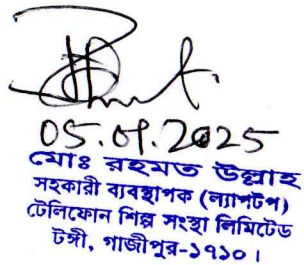 05.01.2025
মোঃ রহমত উল্লাহ
সহকারী ব্যবস্থাপক (ল্যাপটপ)
টেলিফোন শিল্প সংস্থা লিমিটেড
টঙ্গী, গাজীপুর-১৭১০।